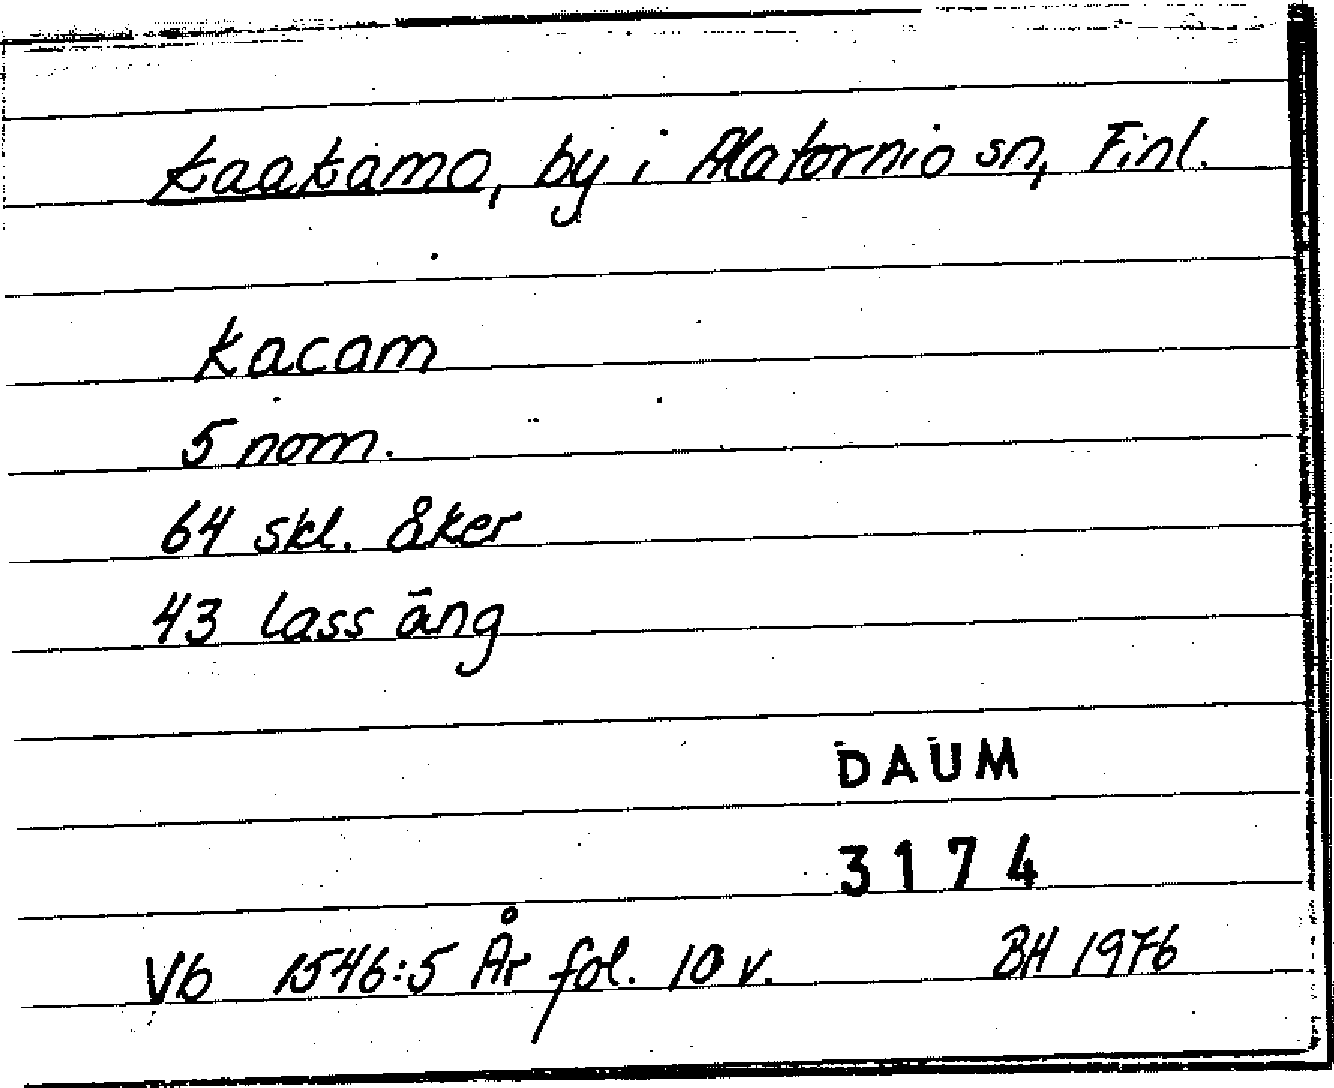 Kaakamo, by i Alatornio sn, Finl.
Kacam
5 nom.
64 skl. åker
43 lass äng
DAUM
3174
Vb 1546:5 År fol. 10 v. BH 1976